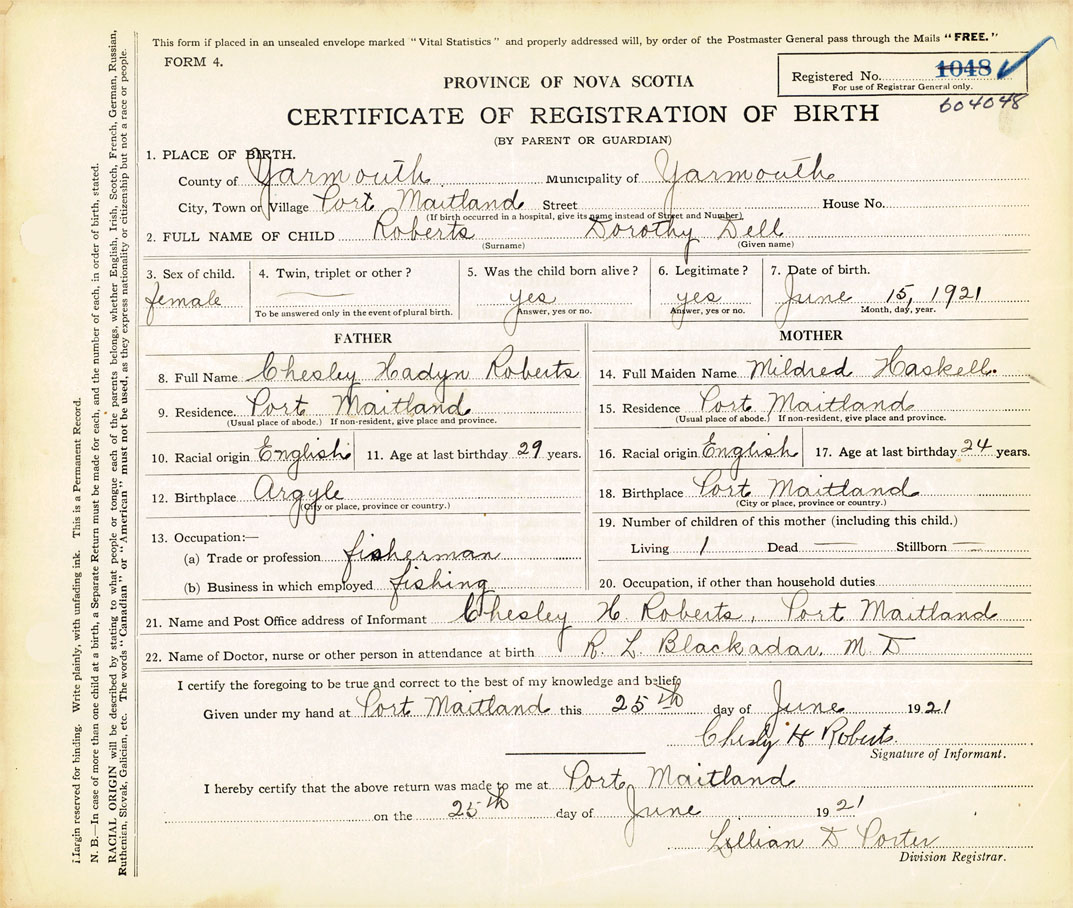 This form if placed in an unsealed envelope marked "Vital Statistics" and properly addressed will, by order of the Postmaster General pass through the Mails "FREE."
FORM 4.
Registered No. 1048
For use of Registrar General only.
604048
PROVINCE OF NOVA SCOTIA
CERTIFICATE OF REGISTRATION OF BIRTH
(BY PARENT OR GUARDIAN)
1. PLACE OF BIRTH.
County of Yarmouth Municipality of Yarmouth
City, Town or Village Port Maitland Street House No.
(If birth occurred in a hospital, give its name instead of Street and Number)
2. FULL NAME OF CHILD Roberts Dorothy Dell
(Surname) (Given name)
3. Sex of child. 4. Twin, triplet or other? 5. Was the child born alive? 6. Legitimate? 7. Date of birth.
female yes yes June 15, 1921
To be answered only in the event of plural birth. Answer, yes or no. Answer, yes or no. Month, day, year.
FATHER
8. Full Name Chesley Hadyn Roberts
9. Residence. Port Maitland
(Usual place of abode.) If non-resident, give place and province.
10. Racial origin English 11. Age at last birthday 29 years.
12. Birthplace Argyle
(City or place, province or country.)
13. Occupation:—
(a) Trade or profession fisherman
(b) Business in which employed fishing
MOTHER
14. Full Maiden Name Mildred Haskell.
15. Residence Port Maitland
(Usual place of abode.) If non-resident, give place and province.
16. Racial origin English 17. Age at last birthday 24 years.
18. Birthplace Port Maitland
(City or place, province or country.)
19. Number of children of this mother (including this child.)
Living 1 Dead — Stillborn —
20. Occupation, if other than household duties
21. Name and Post Office address of Informant Chesley H. Roberts, Port Maitland
22. Name of Doctor, nurse or other person in attendance at birth R. L. Blackadar, M. D
I certify the foregoing to be true and correct to the best of my knowledge and belief.
Given under my hand at Port Maitland this 25th day of June 1921
Chesly H Roberts.
Signature of Informant.
I hereby certify that the above return was made to me at Port Maitland
on the 25th day of June 1921
Lillian D Porter
Division Registrar.
Margin reserved for binding. Write plainly, with unfading ink. This is a Permanent Record.
N. B.—In case of more than one child at a birth, a Separate Return must be made for each, and the number of each, in order of birth, stated.
RACIAL ORIGIN will be described by stating to what people or tongue each of the parents belongs, whether English, Irish, Scotch, French, German, Russian,
Ruthenian, Slovak, Galician, etc. The words "Canadian" or "American" must not be used, as they express nationality or citizenship but not a race or people.